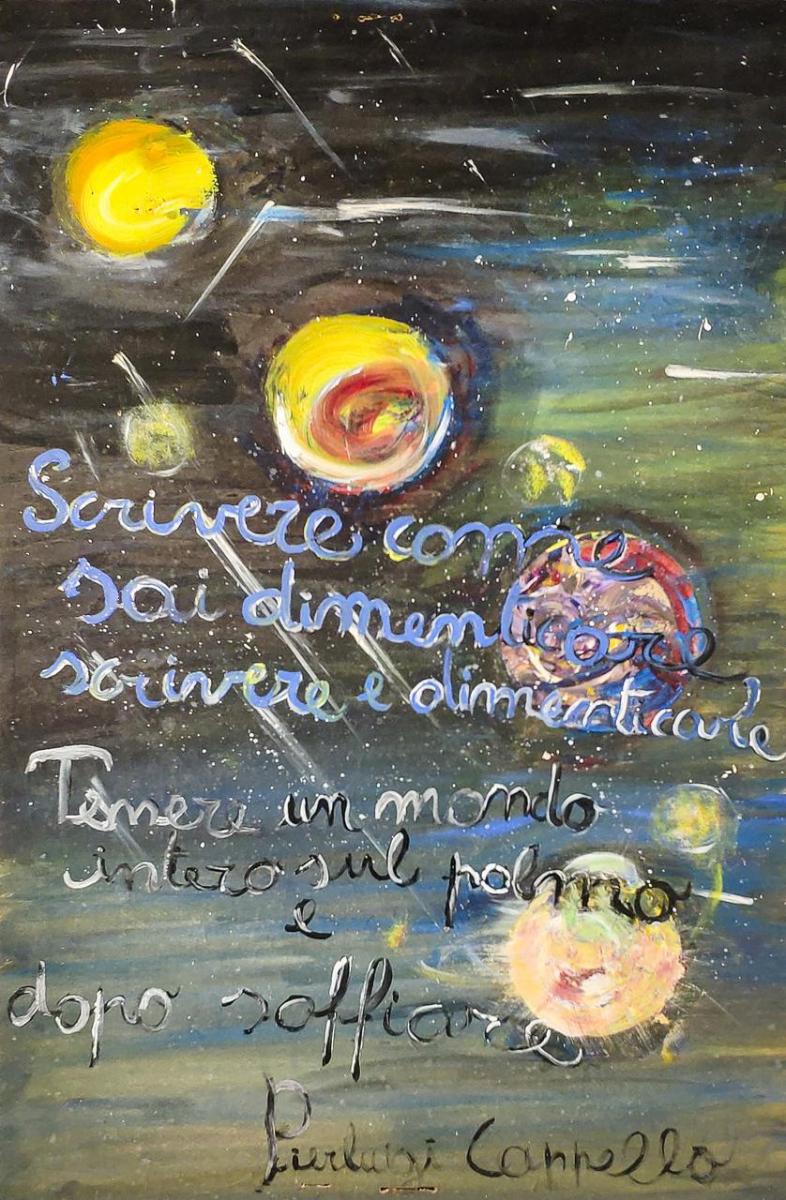 Scrivere come
sai dimenticare,
scrivere e dimenticare
Tenere un mondo
intero sul palmo
e
dopo soffiare
Pierluigi Cappello